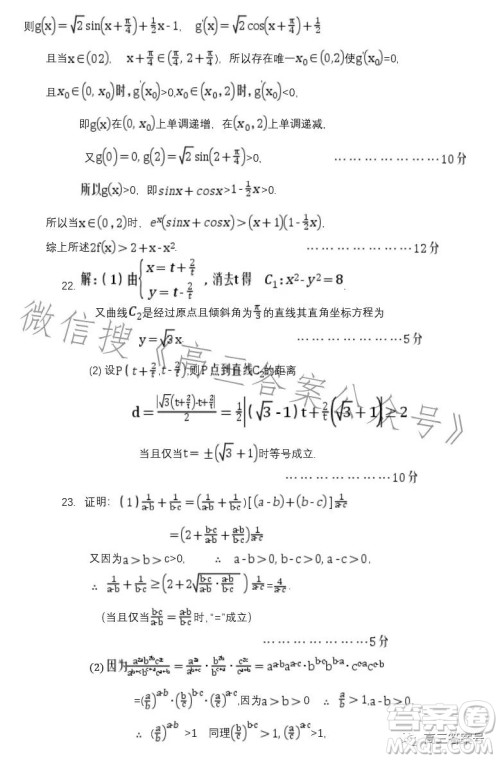 则g(x)=√2sin(x+π/4)+1/2x-1, g'(x)=√2cos(x+π/4)+1/2
且当x∈(02), x+π/4∈(π/4, 2+π/4), 所以存在唯一x₀∈(0,2)使g'(x₀)=0,
且x₀∈(0, x₀)时,g'(x₀)>0,x₀∈(x₀, 2)时, g'(x₀)<0,
即g(x)在(0, x₀)上单调递增, 在(x₀, 2)上单调递减,
又g(0)=0, g(2)=√2sin(2+π/4)>0, ………………… 10分
所以g(x)>0, 即sinx+cosx>1-1/2x>0.
所以当x∈(0,2)时, eˣ(sinx+cosx)>(x+1)(1-1/2x).
综上所述2f(x)>2+x-x². ………………… 12分
22. 解:(1)由{x=t+2/t, y=t-2/t, 消去t得 C₁: x²-y²=8.
又曲线C₂是经过原点且倾斜角为π/3的直线其直角坐标方程为
y=√3x ………………… 5分
(2) 设P(t+2/t,t-2/t),则P点到直线C₂的距离
d=|√3(t+2/t)-t+2/t|/2=1/2|(√3-1)t+2/t(√3+1)|≥2
当且仅当t=±(√3+1)时等号成立.
………………… 10分
23. 证明: (1)1/(a-b)+1/(b-c)=(1/(a-b)+1/(b-c))[(a-b)+(b-c)]1/(a-c)
=(2+(b-c)/(a-b)+(a-b)/(b-c))1/(a-c)
又因为a>b>c>0, ∴ a-b>0, b-c>0, a-c>0,
∴ 1/(a-b)+1/(b-c)≥(2+2√((b-c)/(a-b)·(a-b)/(b-c)))1/(a-c)=4/(a-c).
(当且仅当(a-b)/(b-c)=(a-b)/(b-c)时,"="成立)
………………… 5分
(2)
∴ (a/b)^(a-b) >1 同理(b/c)^(b-c)>1, (a/c)^(a-c)>1
微信搜《高三答案公众号》
高三答案号
答案圈
MXQE.COM